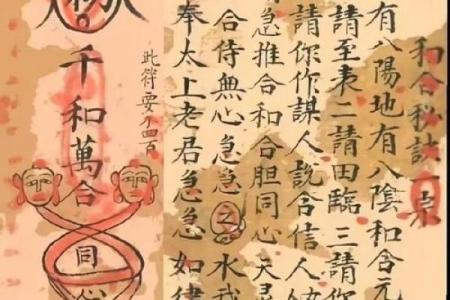 和合秘訣一宗
有八陽地有八陰和合元
請至表二請田臨三請你
請你作謀人說合信人
急推合和合胆同心天忌
合侍無心急急之水我
奉太上老君急急如律
此符要了四百
千和萬合
同心